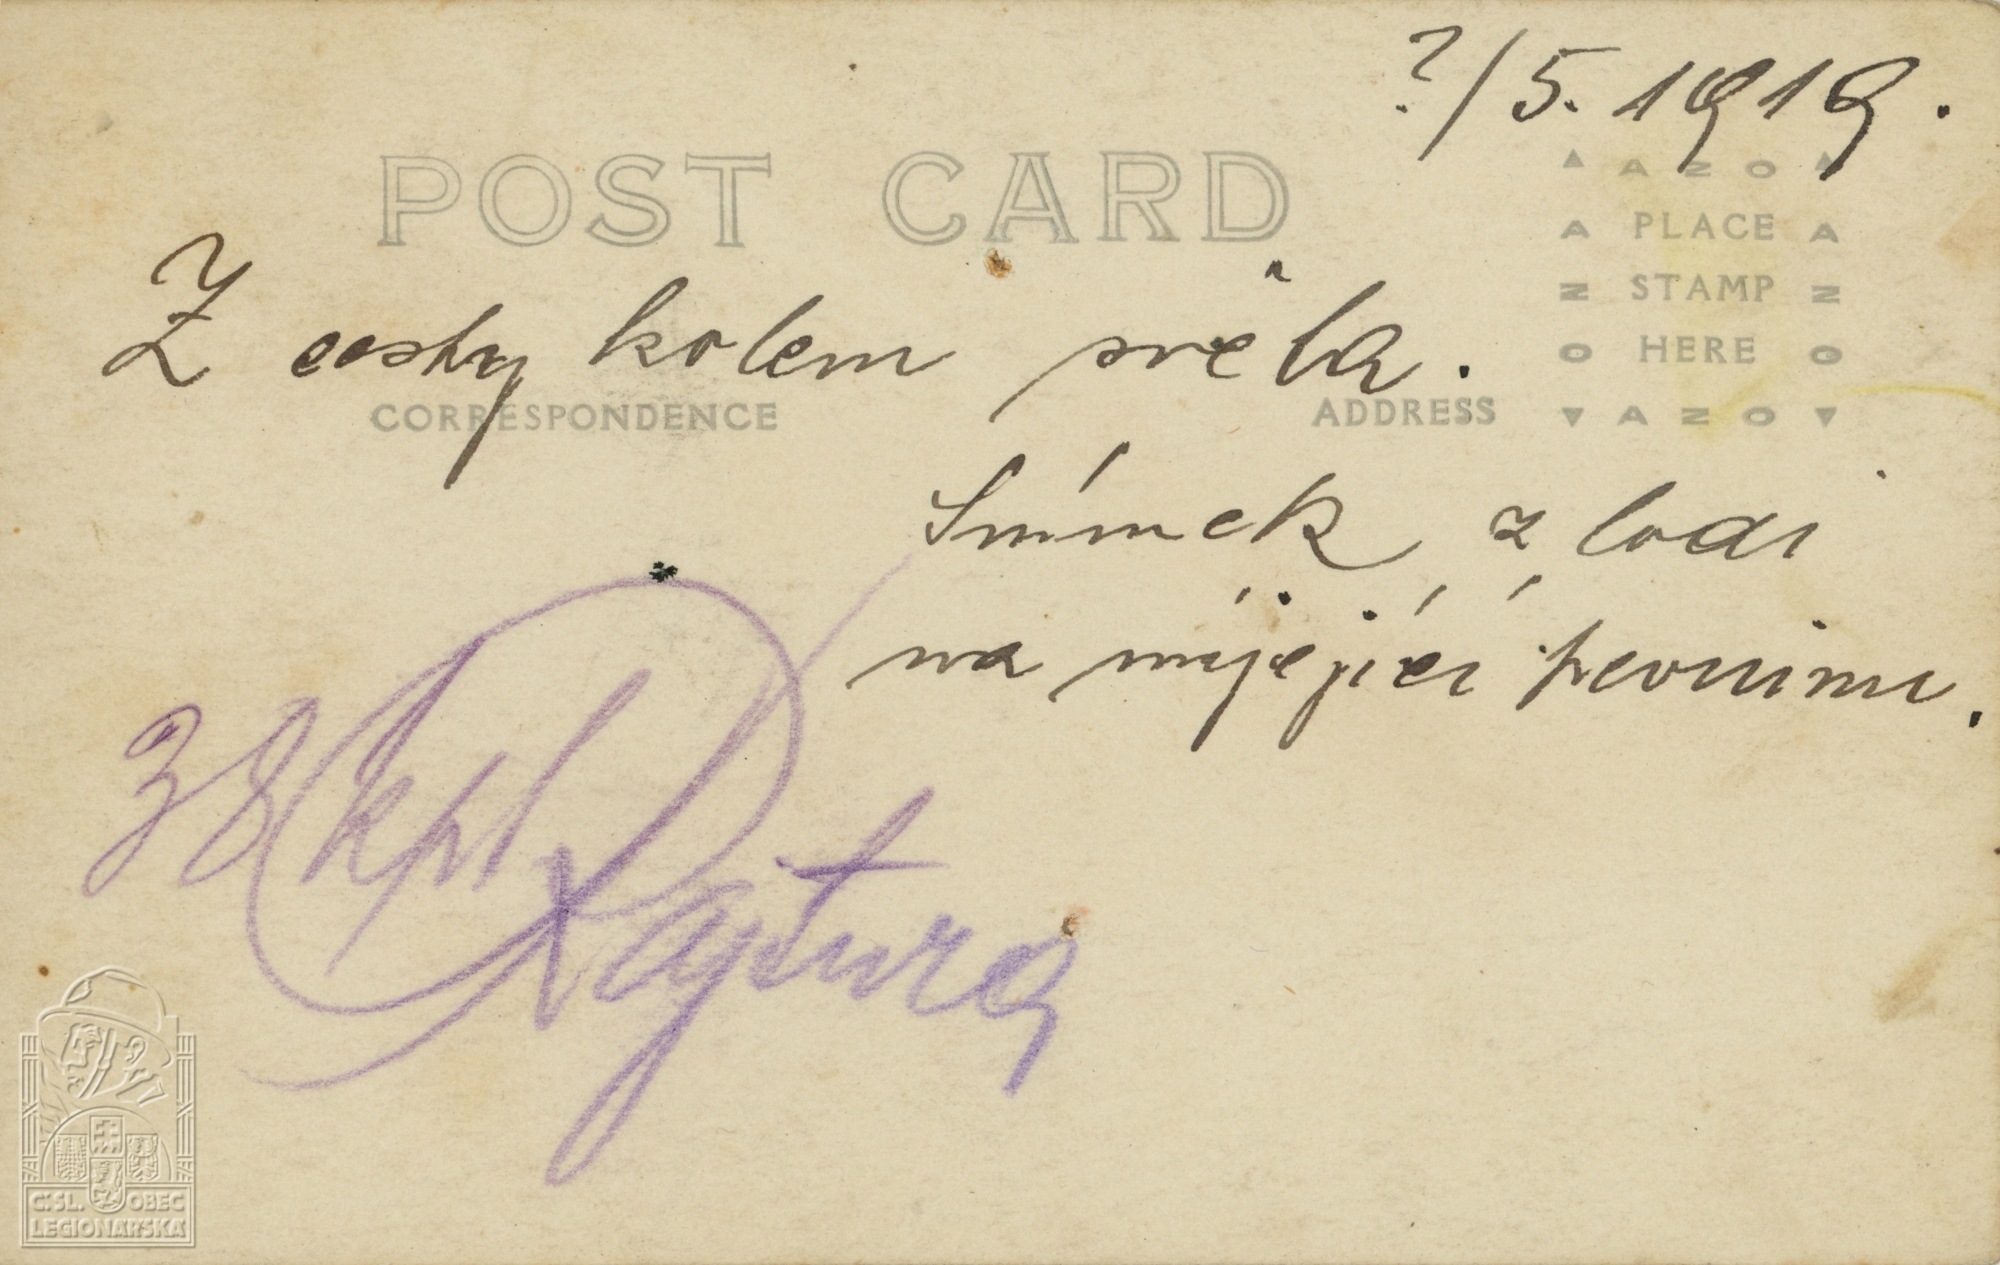 ?/5. 1919.
POST CARD
AZO
PLACE
STAMP
HERE
AZO
Z cesty kolem světa.
CORRESPONDENCE
ADDRESS
Snímek z lodi
na míjející pevninu.
38 kpl
Rajtora
Č:SL. OBEC
LEGIONÁŘSKÁ